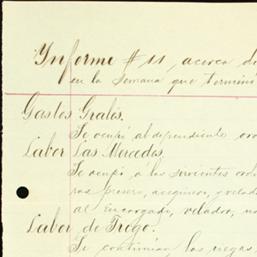 Informe # 11, acerca d
en la semana que terminó
Gastos Grales.
Se ocupó al dependiente
Labor Las Mercedes.
Se ocupó a los sirvientes
al Encargado, velador,
Labor de Trigo.
Se continúan los riegos,